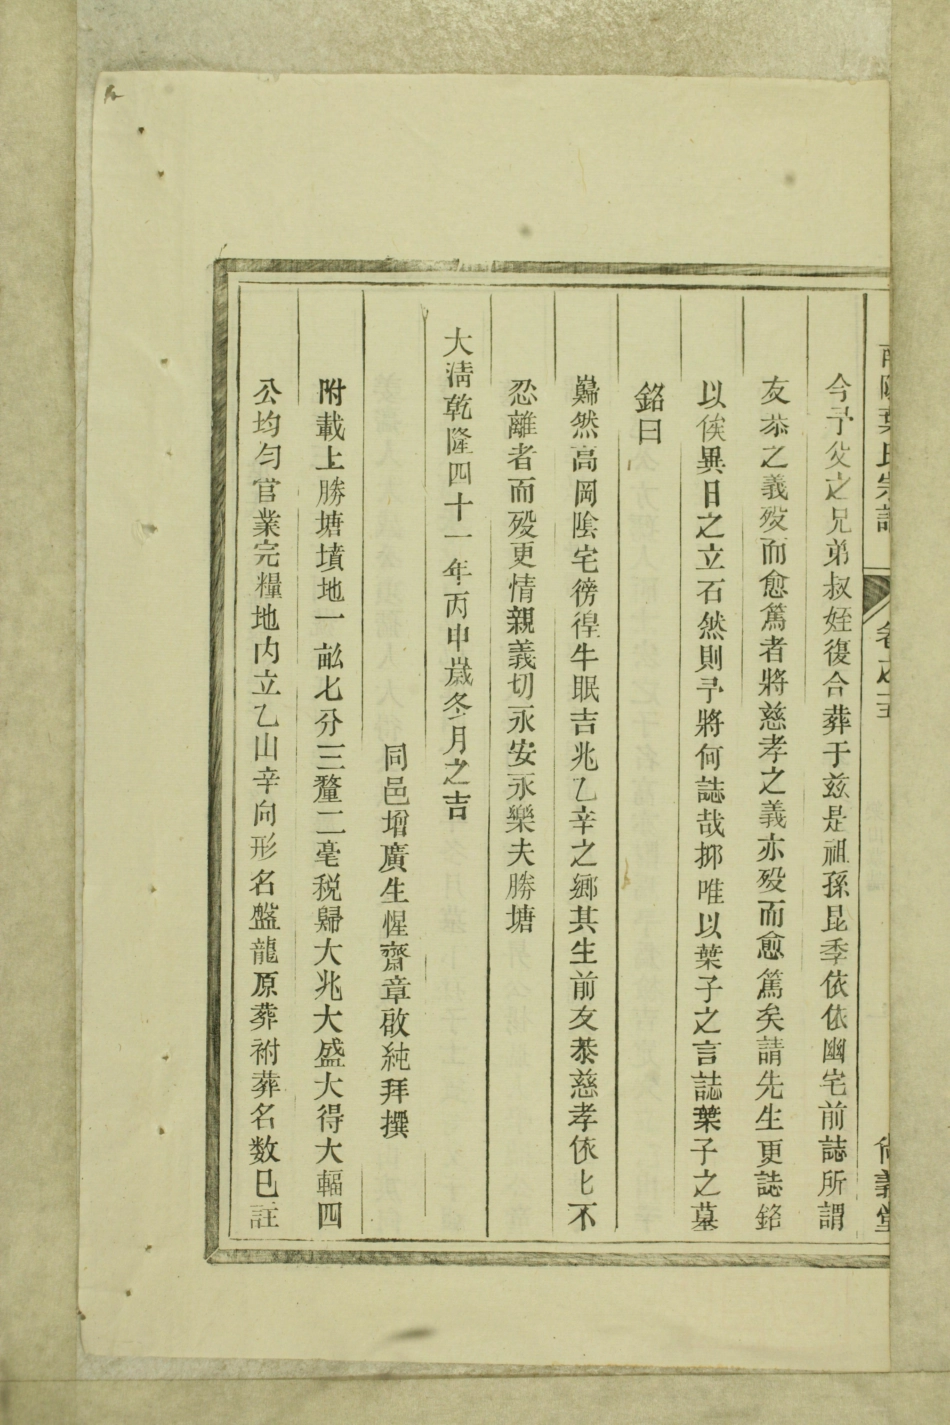 南陽葉氏宗譜 卷之五 尙義堂
今予父之兄弟叔姪復合葬于玆是祖孫昆季依依幽宅前誌所謂
友恭之義歿而愈篤者將慈孝之義亦歿而愈篤矣請先生更誌銘
以俟異日之立石然則予將何誌哉抑唯以葉子之言誌葉子之墓
銘曰
巋然高岡陰宅徬徨牛眠吉兆乙辛之鄉其生前友恭慈孝依匕不
忍離者而歿更情親義切永安永樂夫勝塘
大淸乾隆四十一年丙申歲冬月之吉
同邑增廣生惺齋章啟純拜撰
附載上勝塘墳地一畝七分三釐二毫税歸大兆大盛大得大輻四
公均匀管業完糧地内立乙山辛向形名盤龍原葬祔葬名数已註